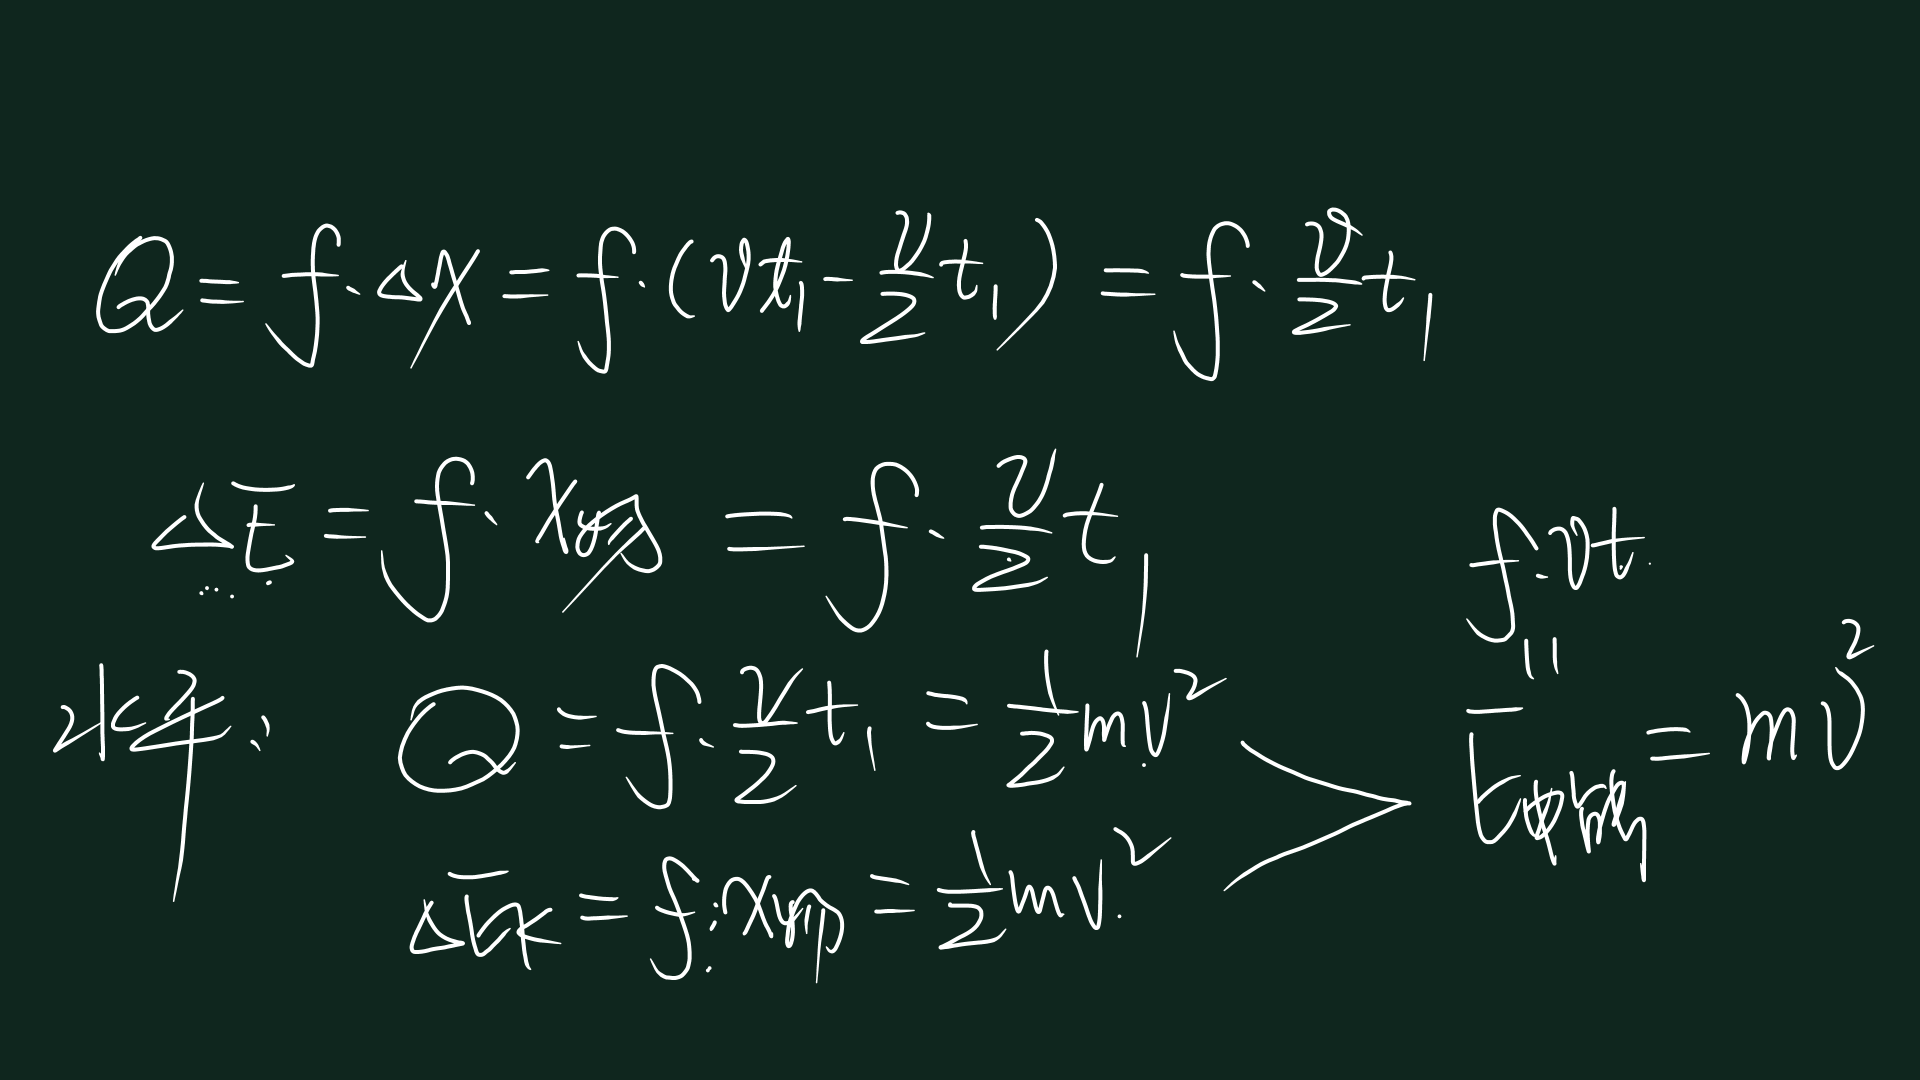 Q = f·Δx = f·(vt₁ - v/2 t₁) = f·v/2 t₁
ΔE = f·x物 = f·v/2 t₁
f·vt
水平: Q = f·v/2 t₁ = 1/2 mv²
ΔEk = f·x物 = 1/2 mv²
=
E电 = mv²